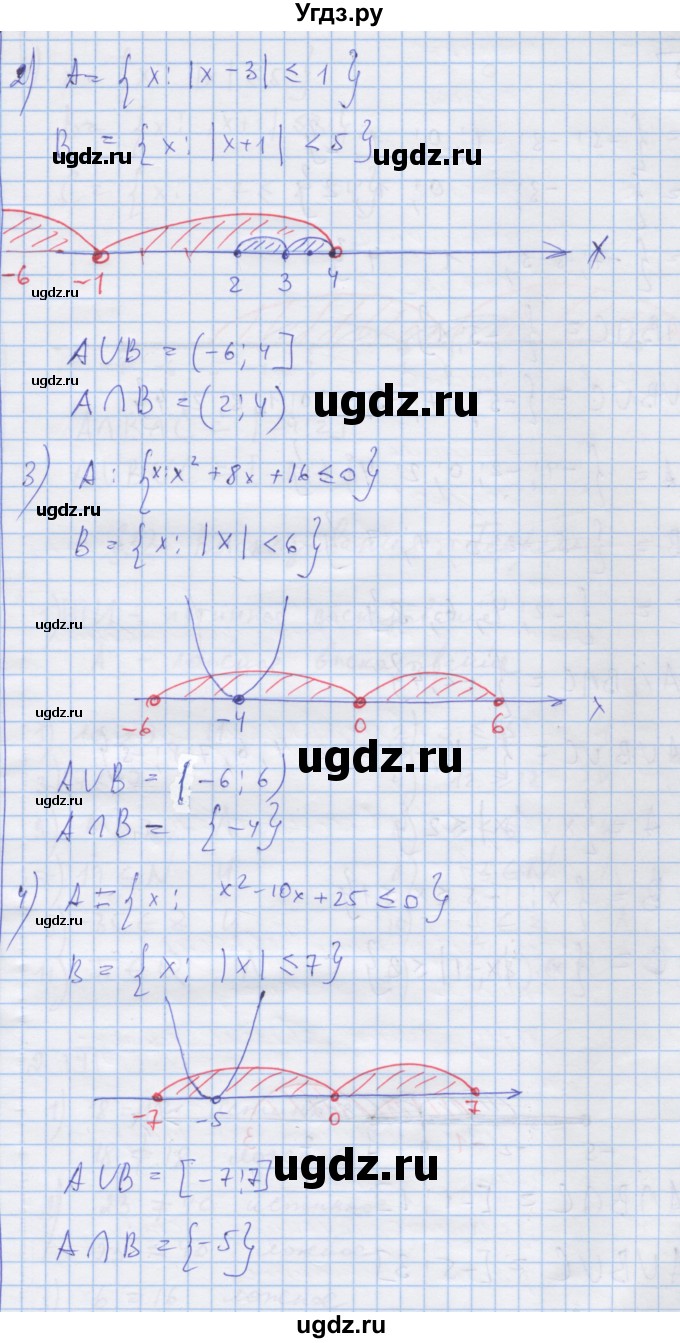 Угдз.ру
2) A = { x : |x - 3| ≤ 1 }
B = { x : |x+1| < 5 }
ugdz.ru ugdz.ru
-6 -1 2 3 4 x
ugdz.ru
A∪B = (-6; 4]
ugdz.ru
A∩B = (2; 4)
ugdz.ru
3) A : { x: x² + 8x + 16 ≤ 0 }
ugdz.ru
B = { x : |x| < 6 }
ugdz.ru
-6 -4 0 6 x
ugdz.ru
ugdz.ru
A∪B = (-6; 6)
ugdz.ru
A∩B = {-4}
ugdz.ru
4) A = { x : x² - 10x + 25 ≤ 0 }
ugdz.ru
B = { x : |x| ≤ 7 }
-7 -5 0 7
ugdz.ru
A∪B = [-7; 7]
A∩B = {-5}
ugdz.ru